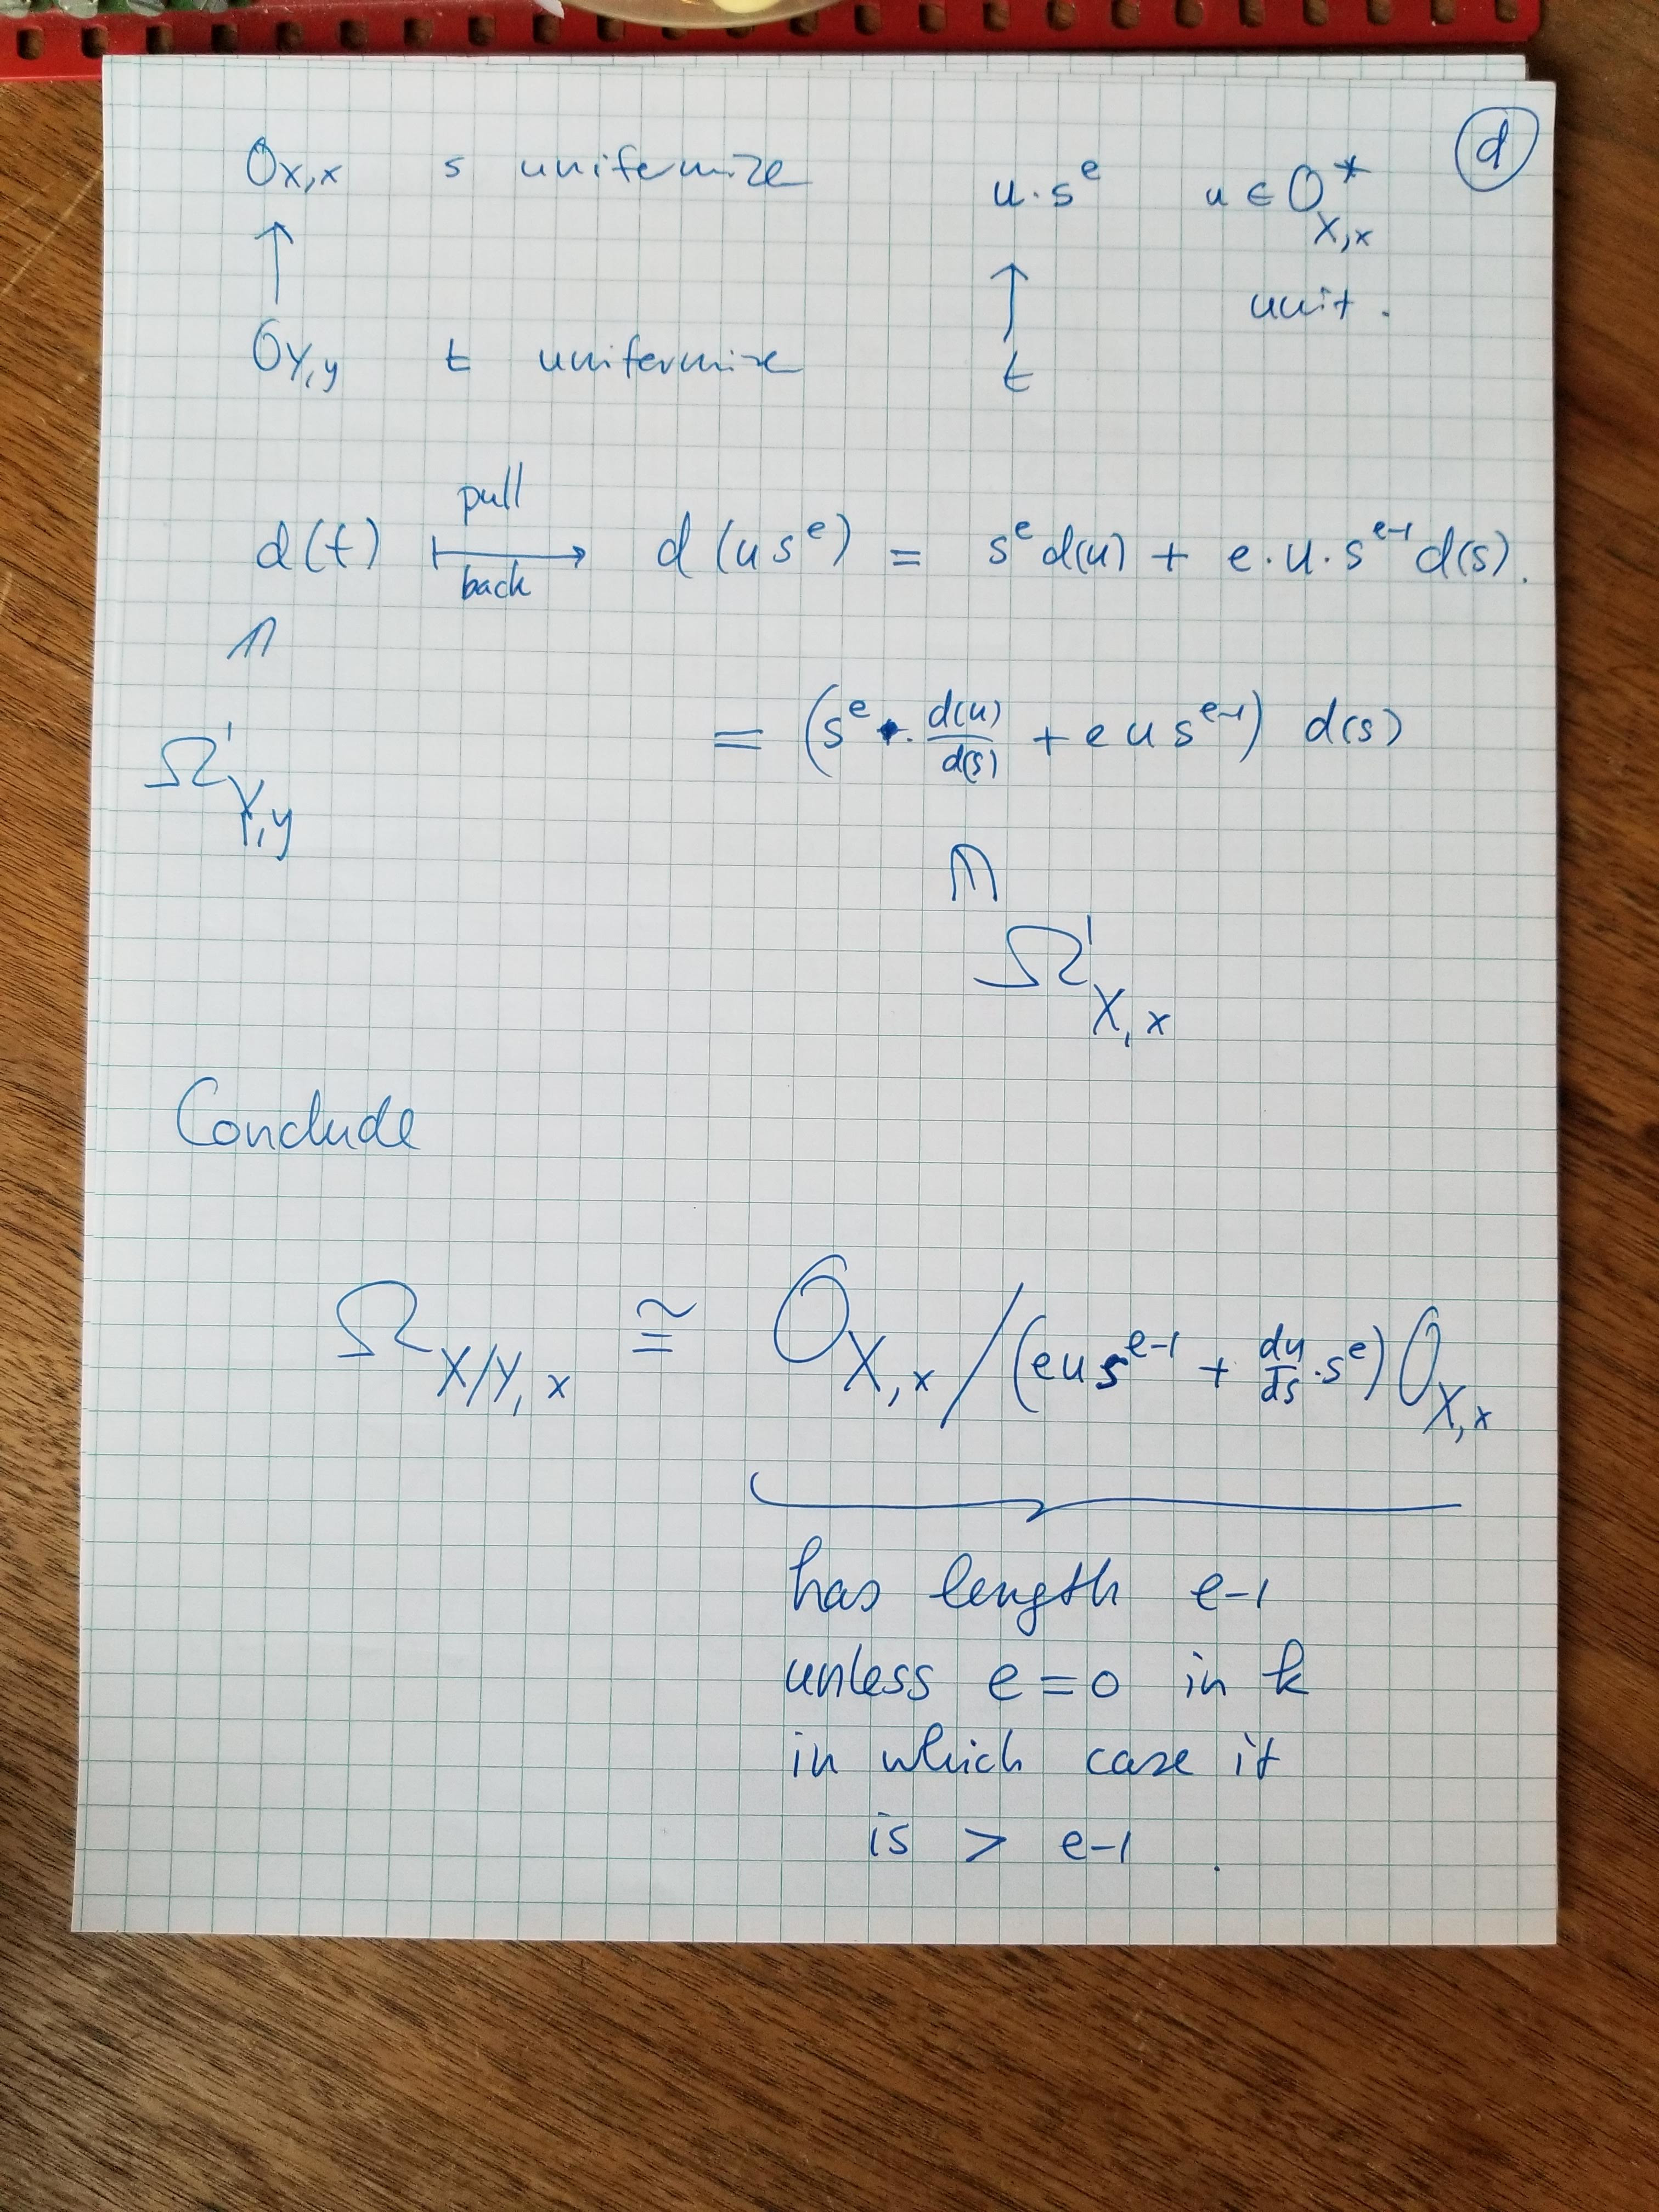 d
O_{X,x} s uniformize u·s^e u ∈ O^*_{X,x}
↑ ↑ unit.
O_{Y,y} t uniformize t
d(t) ⟼ pull back d(us^e) = s^e d(u) + e·u·s^{e-1} d(s).
∩
Ω^1_{Y,y} = (s^e · \frac{d(u)}{d(s)} + e u s^{e-1}) d(s)
∩
Ω^1_{X,x}
Conclude
Ω_{X/Y,x} ≅ O_{X,x} / (e u s^{e-1} + \frac{du}{ds}·s^e) O_{X,x}
has length e-1
unless e = 0 in k
in which case it
is > e-1.